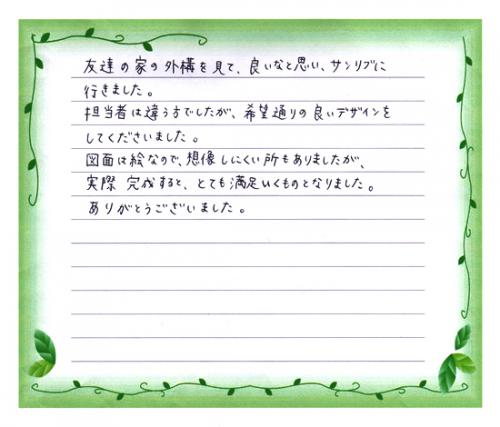 友達の家の外構を見て、良いなと思い、サンリブに
行きました。
担当者は違う方でしたが、希望通りの良いデザインを
してくださいました。
図面は絵なので、想像しにくい所もありましたが、
実際 完成すると、とても満足いくものとなりました。
ありがとうございました。